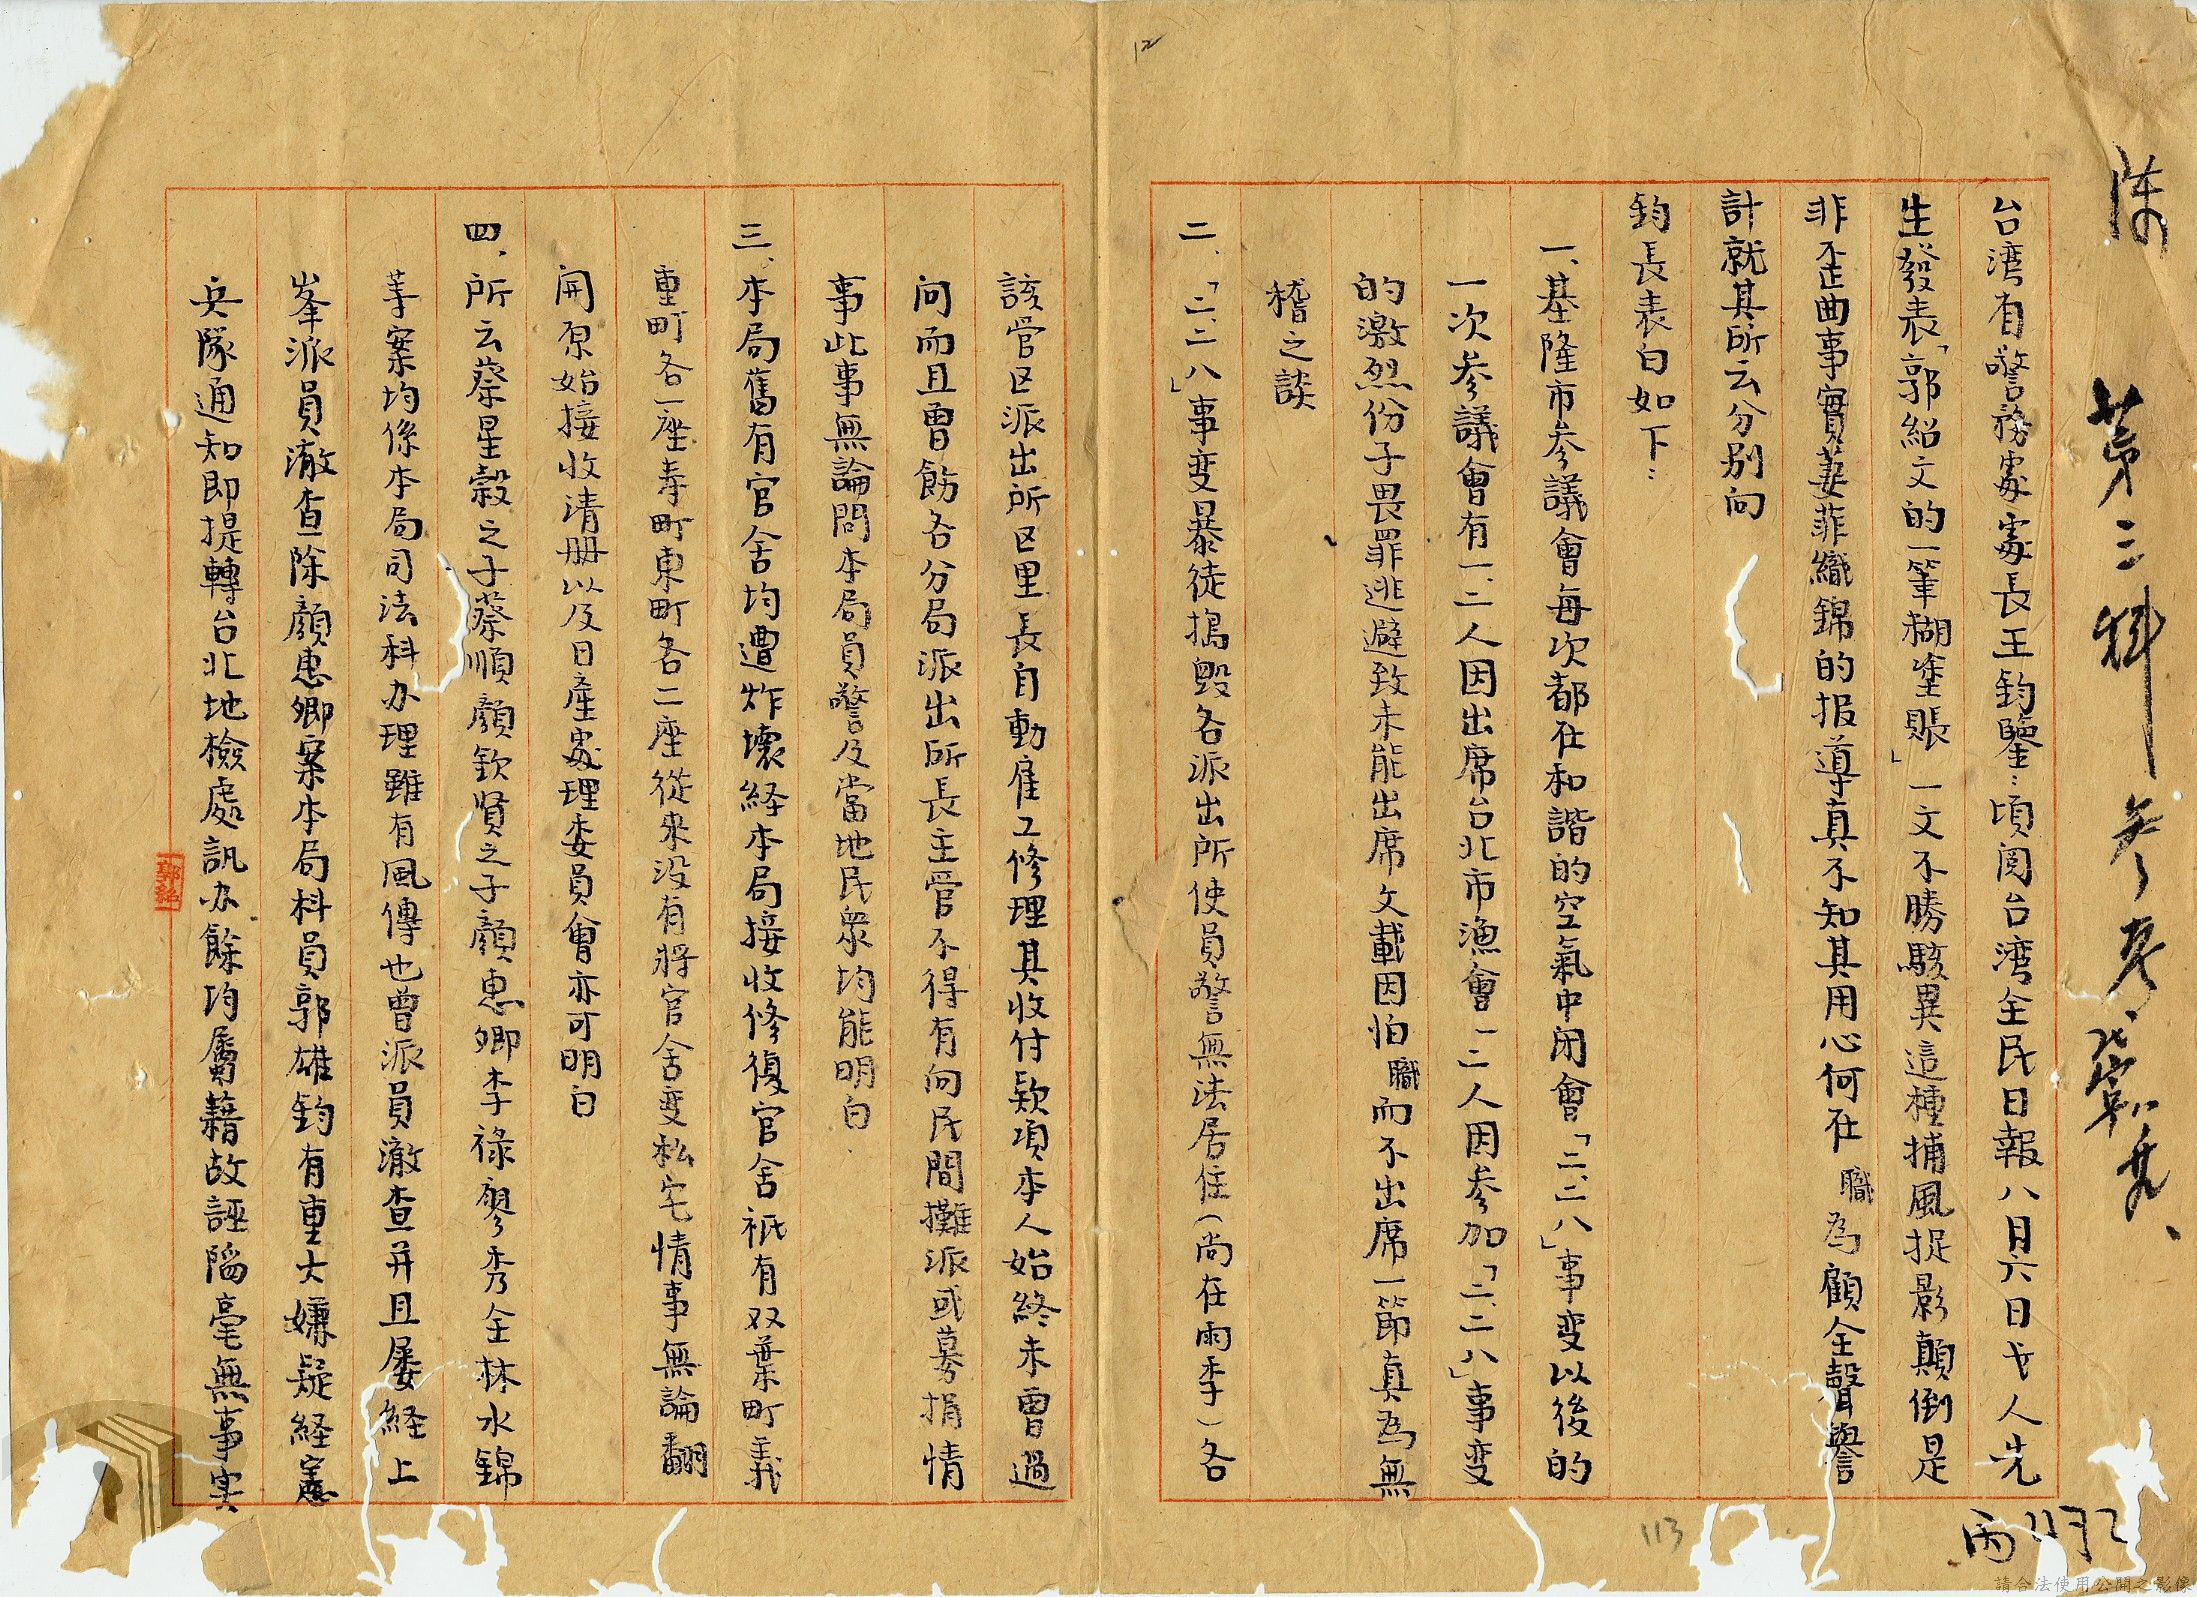 陈 第三科 参考
台湾有警務處處長王鈞鑒：頃閱台湾全民日報八月六日弋人先
生發表「郭紹文的一筆糊塗賬」一文不勝駭異這種捕風捉影顛倒是
非歪曲事實萋菲織錦的报導真不知其用心何在職為顧全聲譽
計就其所云分别向
鈞長表白如下：
一、基隆市参議會每次都在和諧的空氣中闭會「二、二八」事变以後的
一次参議會有一、二人因出席台北市漁會一二人因参加「二、二八」事变
的激烈份子畏罪逃避致未能出席文載因怕職而不出席一節真為無
稽之談
二、「二、二八」事变暴徒搗毁各派出所使員警無法居住(尚在雨季)各
該管区派出所区里長自動雇工修理其收付欵項本人始终未曾過
问而且曾飭各分局派出所長主管不得有向民間攤派或募捐情
事此事無論問本局員警及當地民衆均能明白
三、本局舊有官舍均遭炸壞経本局接收修復官舍祇有双葉町義
重町各一座寿町東町各二座從来没有將官舍变私宅情事無論翻
開原始接收清册以及日產處理委員會亦可明白
四、所云蔡星穀之子蔡順顏欽賢之子顏惠卿李祿廖秀全林水錦
等案均係本局司法科办理雖有風傳也曾派員澈查并且屡经上
峯派員澈查除顏惠卿案本局科員郭雄鈞有重大嫌疑経憲
兵隊通知即提轉台北地檢處訊办餘均屬藉故誣陷毫無事実
郭紹
12
113
請合法使用公開之影像